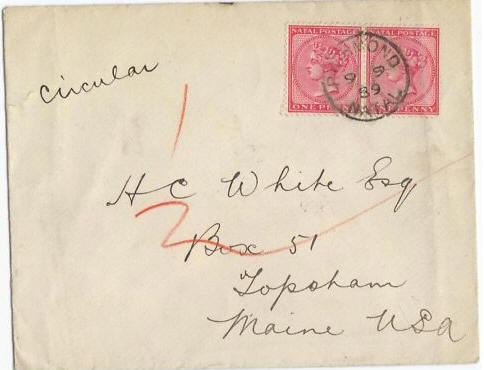 NATAL POSTAGE NATAL POSTAGE
RICHMOND
9 89
NATAL
ONE PENNY
Circular
1
H C White Esq
2
Box 51
Topsham
Maine USA